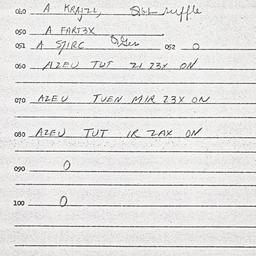 040 A KRAJZL, ruffle
050 A FART3X
051 A STIRC 052 O
060 AZEU TUT 21 23X ON
070 AZEU TUEN MIR 23X ON
080 AZEU TUT IR 2AX ON
090 O
100 O